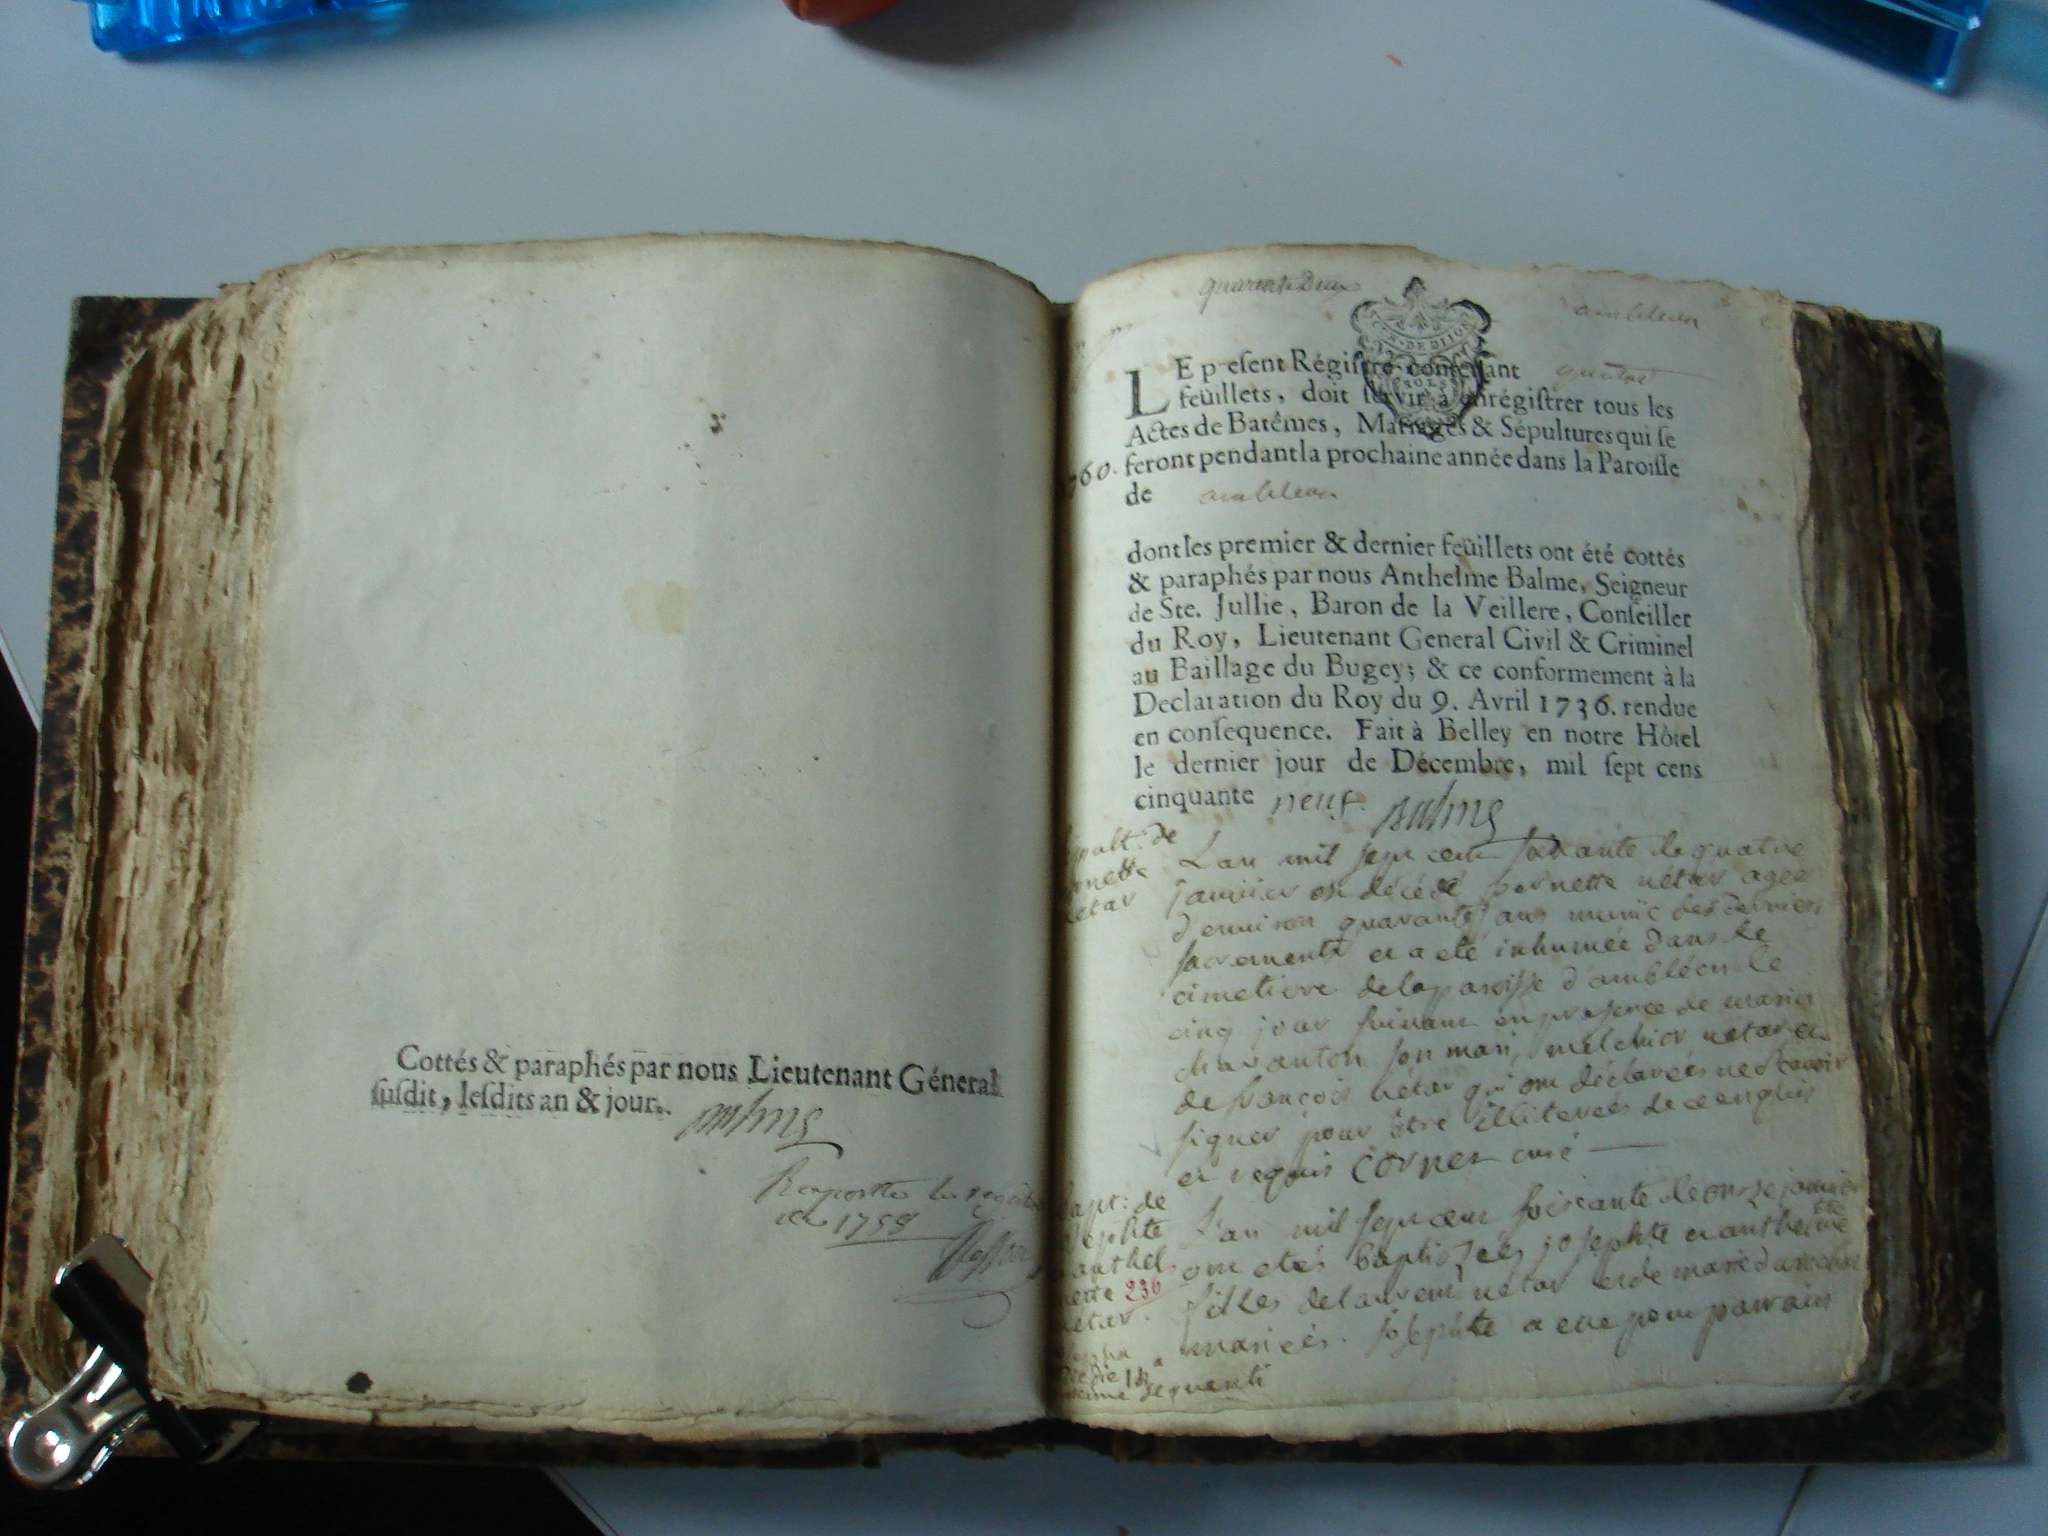 Cottés & paraphés par nous Lieutenant Géneral
susdit, lesdits an & jour.
Balme
1758
quarante Deux
ambleon
GEN. DE DIJON
LE present Régistre contenant quatre
feüillets, doit servir à enrégistrer tous les
Actes de Batêmes, Mariages & Sépultures qui se
1760. feront pendant la prochaine année dans la Paroisse
de ambleon
dont les premier & dernier feüillets ont été cottés
& paraphés par nous Anthelme Balme, Seigneur
de Ste. Jullie, Baron de la Veillere, Conseiller
du Roy, Lieutenant General Civil & Criminel
au Baillage du Bugey; & ce conformement à la
Declaration du Roy du 9. Avril 1736. rendue
en consequence. Fait à Belley en notre Hôtel
le dernier jour de Décembre, mil sept cens
cinquante neuf. Balme
L'an mil sept cent soixante le quatre
janvier est décédé pernette nétar agée
d'environ quarante ans munie des derniers
sacrements et a été inhumée dans le
cimetiere de la paroisse d'ambléon le
cinq jour suivant en presence de
son mari, melchior netar et
de françois nétar qui ont déclarées ne scavoir
signer pour être illiterées de ce enquis
et requis Cornet curé
L'an mil sept cent soixante le onze janvier
ont etés baptisées josephte et anthelmette
filles de laurent netar et de marie
mariés. josephte a eue pour parrain
bapt: de
josephte
anthel
mette 236
netar.
sequenti